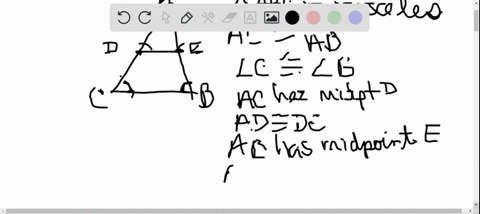 D E
C B
AB
∠C ≅ ∠B
AC has midpt D
AD ≅ DC
AB has midpoint E